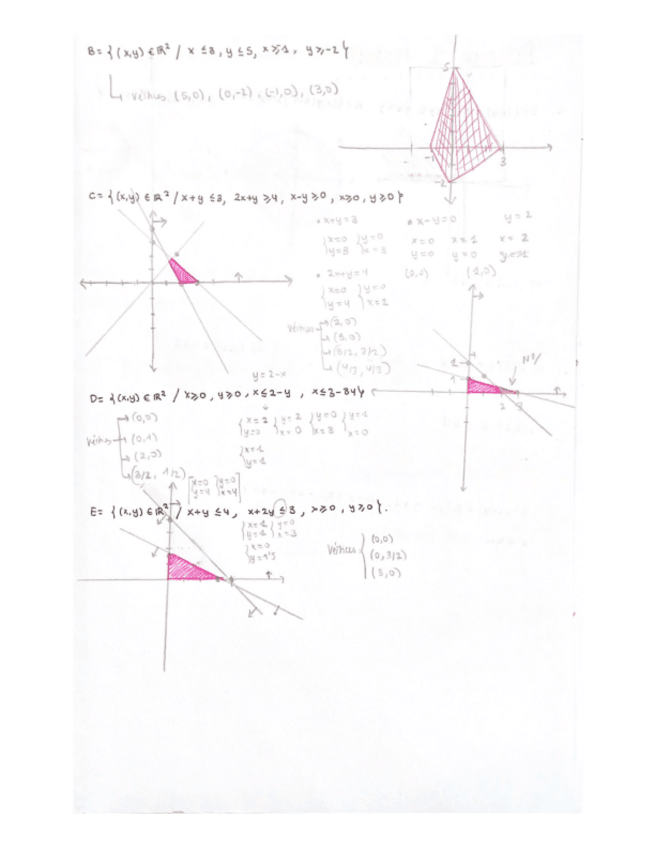 B = { (x,y) ∈ ℝ² / x ≤ 3, y ≤ 5, x ≥ -1, y ≥ -2 }
Vértices (5,0), (0,-2), (-1,0), (3,0)
5
-1
3
-2
C = { (x,y) ∈ ℝ² / x+y ≤ 3, 2x+y ≥ 4, x-y ≥ 0, x ≥ 0, y ≥ 0 }
• x+y=3
• x-y=0
y=2
x=0 y=0
y=3 x=3
x=0 x=1 x=2
y=0 y=0
• 2x+y=4
(0,0) (1,0)
x=0 y=0
y=4 x=2
Vértices
(2,0)
(3,0)
(3/2, 3/2)
(4/3, 4/3)
y=2-x
D = { (x,y) ∈ ℝ² / x ≥ 0, y ≥ 0, x ≤ 2-y, x ≤ 3-3y }
Vértices
(0,0)
(0,1)
(2,0)
(3/2, 1/2)
y=2 y=0 y=1
x=0 x=3 x=0
x=1
y=1
1
2 3
x=0 y=0
y=4 x=4
E = { (x,y) ∈ ℝ² / x+y ≤ 4, x+2y ≤ 3, x ≥ 0, y ≥ 0 }.
x=1 y=0
y=1 x=3
x=0
y=1'5
Vértices
(0,0)
(0, 3/2)
(3,0)